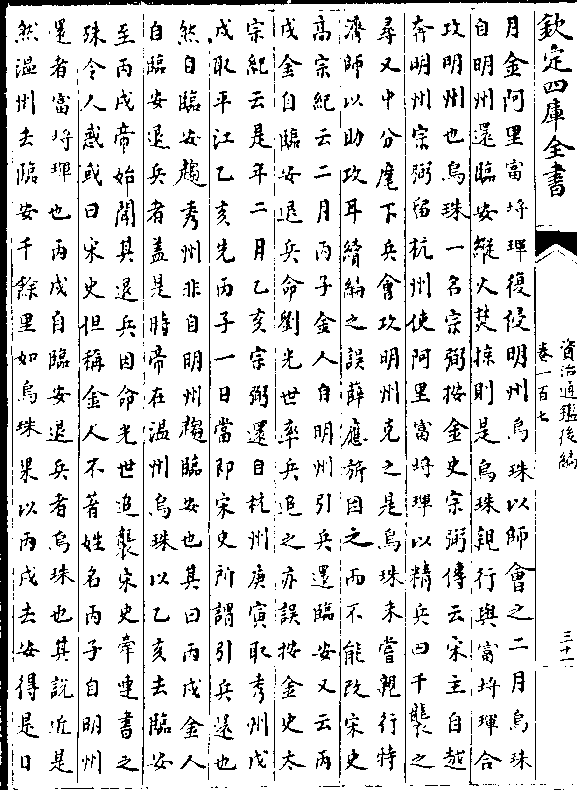 欽定四庫全書
資治通鑑後編
卷一百七
三十一
月金阿里富埒琿復侵明州烏珠以師會之二月烏珠
自明州還臨安縱火焚掠則是烏珠親行與富埒琿合
攻明州也烏珠一名宗弼按金史宗弼傳云宋主自越
奔明州宗弼留杭州使阿里富埒琿以精兵四千襲之
尋又中分麾下兵會攻明州克之是烏珠未嘗親行特
濟師以助攻耳續編之誤薛應旂因之而不能改宋史
高宗紀云二月丙子金人自明州引兵還臨安又云丙
戌金自臨安退兵命劉光世率兵追之亦誤按金史太
宗紀云是年二月乙亥宗弼還自杭州庚寅取秀州戊
戌取平江乙亥先丙子一日當即宋史所謂引兵還也
然自臨安趨秀州非自明州趨臨安也其曰丙戌金人
自臨安退兵者蓋是時帝在溫州烏珠以乙亥去臨安
至丙戌帝始聞其退兵因命光世追襲宋史牽連書之
殊令人惑或曰宋史但稱金人不著姓名丙子自明州
還者富埒琿也丙戌自臨安退兵者烏珠也其說近是
然溫州去臨安千餘里如烏珠果以丙戌去安得是日